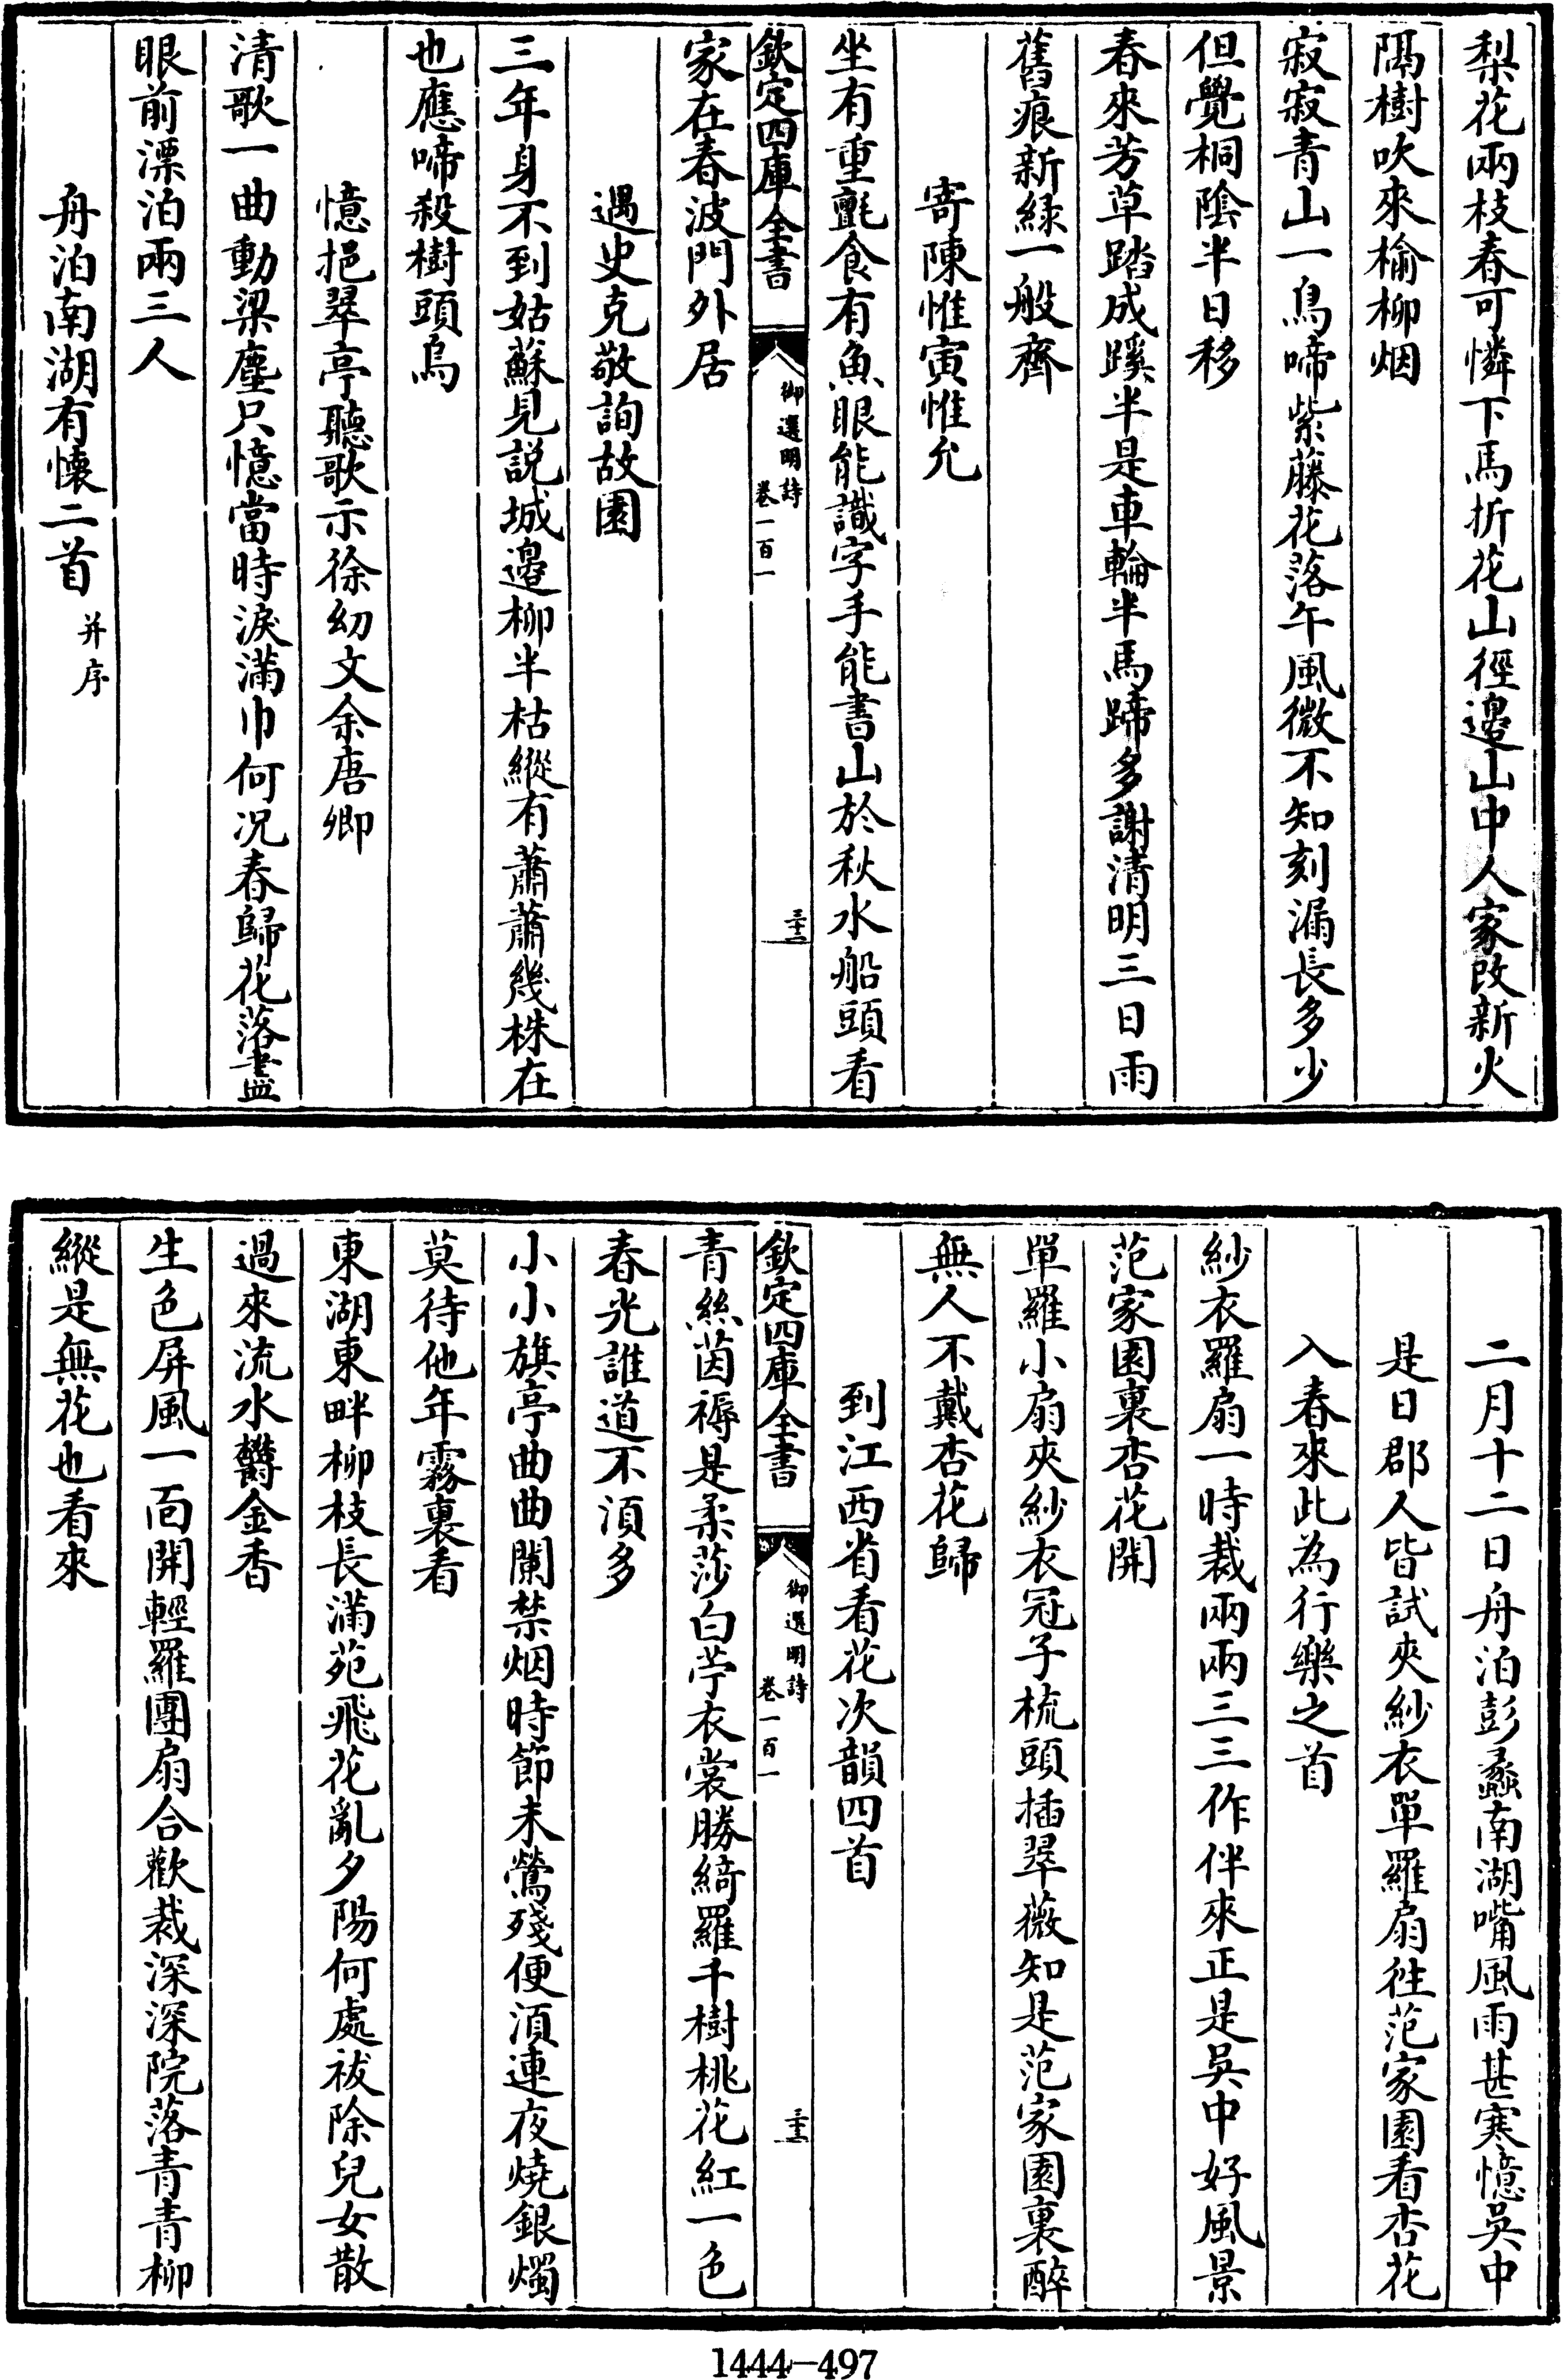 梨花兩枝春可憐下馬折花山徑邊山中人家改新火
隔樹吹來榆柳烟
寂寂青山一鳥啼紫藤花落午風微不知刻漏長多少
但覺桐陰半日移
春來芳草踏成蹊半是車輪半馬蹄多謝清明三日雨
舊痕新綠一般齊
寄陳惟寅惟允
坐有重氈食有魚眼能識字手能書山於秋水船頭看
欽定四庫全書
御選明詩
卷一百一
三十二
家在春波門外居
遇史克敬詢故園
三年身不到姑蘇見説城邊柳半枯縱有蕭蕭幾株在
也應啼殺樹頭烏
憶挹翠亭聽歌示徐幼文余唐卿
清歌一曲動梁塵只憶當時淚滿巾何况春歸花落盡
眼前漂泊兩三人
舟泊南湖有懷二首
并序
二月十二日舟泊彭蠡南湖嘴風雨甚寒憶吳中
是日郡人皆試夾紗衣單羅扇徃范家園看杏花
入春來此為行樂之首
紗衣羅扇一時裁兩兩三三作伴來正是吳中好風景
范家園裏杏花開
單羅小扇夾紗衣冠子梳頭插翠薇知是范家園裏醉
無人不戴杏花歸
到江西省看花次韻四首
欽定四庫全書
御選明詩
卷一百一
三十二
青絲茵褥是柔莎白苧衣裳勝綺羅千樹桃花紅一色
春光誰道不湏多
小小旗亭曲曲闌禁烟時節未鶯殘便湏連夜燒銀燭
莫待他年霧裏看
東湖東畔柳枝長滿苑飛花亂夕陽何處祓除兒女散
過來流水欝金香
生色屏風一面開輕羅團扇合歡裁深深院落青青柳
縱是無花也看來
1444—497